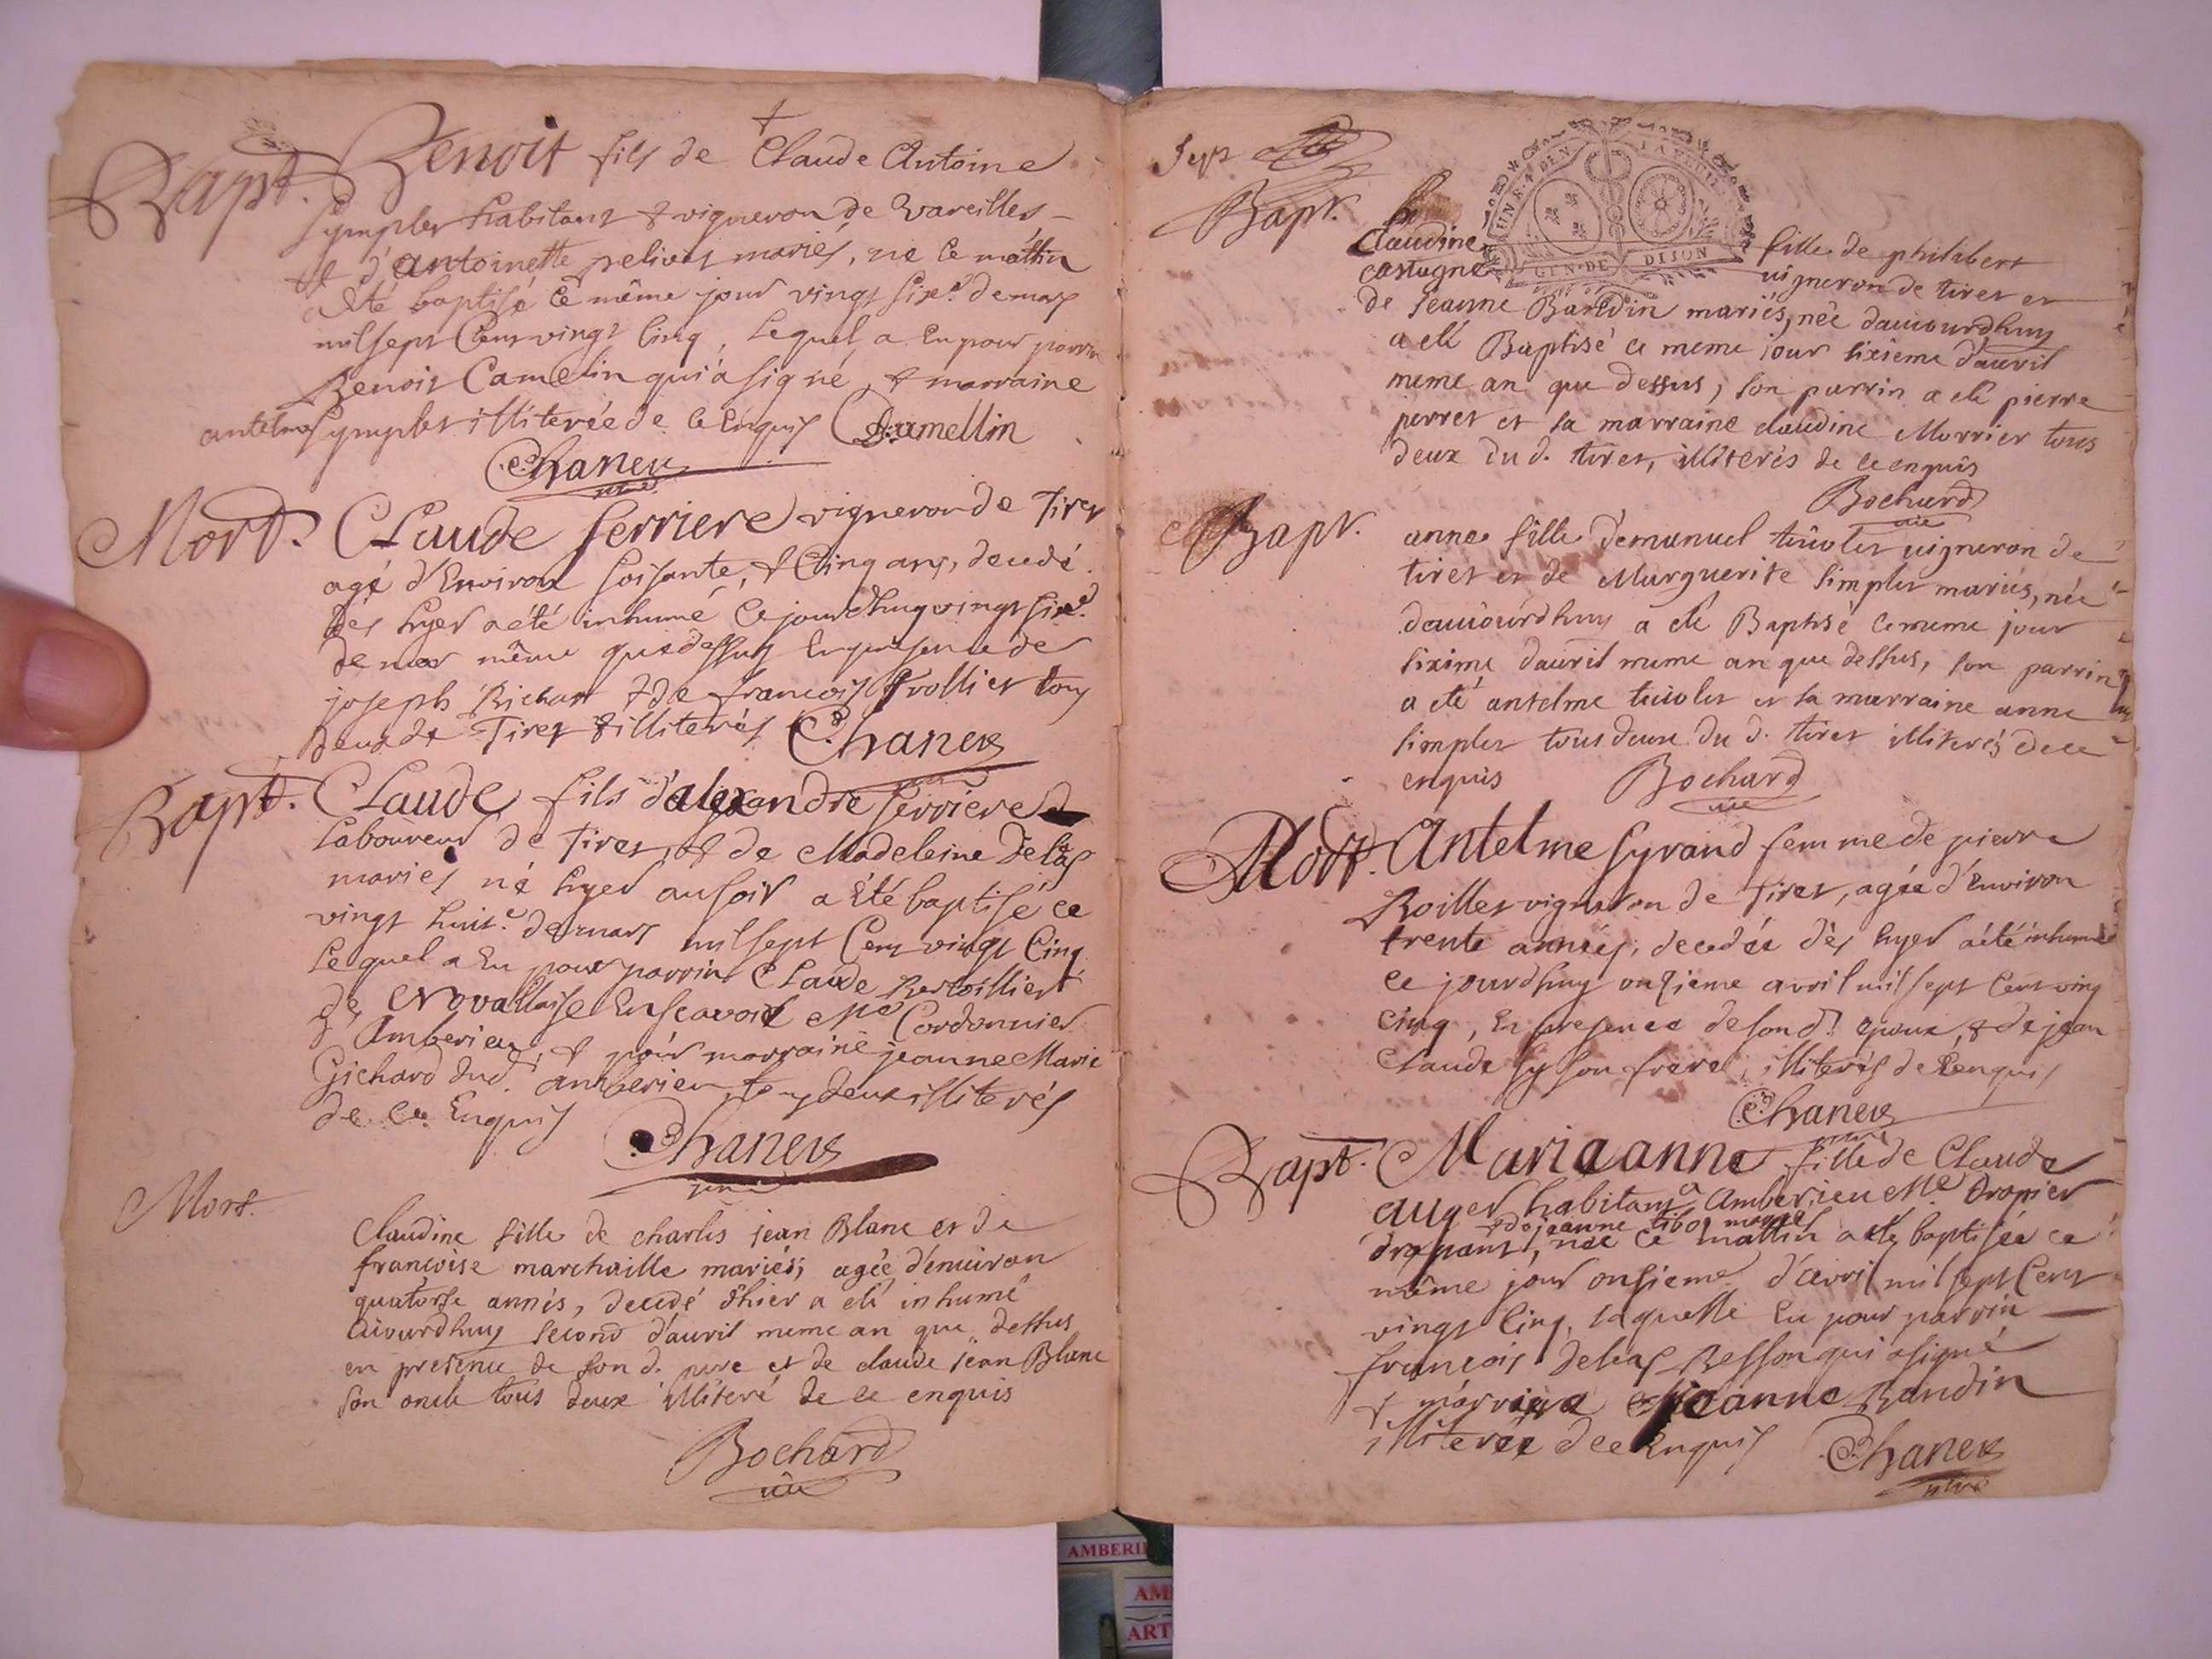 Bapt. Benoit fils de Claude Antoine
Symples habitant & vigneron de Vareilles
& d'antoinette pelives mariés, né ce mattin
a été baptisé ce même jour vingt sixe. de mars
mil sept Cens vingt Cinq, Lequel a Eu pour parrin
Benoit Camelin qui a signé, & marraine
antelme Symples illiterée de ce Enquis Camellin
Chanex
Mort. Claude ferriere vigneron de Tiret
agé d'Environ soisante, & Cinq ans, decedé
dès hyer a été inhumé Ce jourdhuy vingt sixe.
de mar même que dessus En presence de
joseph Richart & de francois Trollier tous
deux de Tiret & illiterés Chanex
Bapt. Claude fils d'alexandre ferriere
Laboureur de Tiret, & de Madeleine Delas
mariés né hyer au soir a Eté baptisé ce
vingt huite. de mars mil sept Cens vingt Cinq
Lequel a Eu pour parrin Claude Bertoillier
& pour marraine jeanne Marie
Gichard dud. amberieu tous deux illiterés
de ce Enquis Chanex
Mort.
Claudine fille de charles jean Blanc et de
francoise marchaille mariés, agée d'enuiron
quatorse annés, decedé d'hier a eté inhumé
auiourdhuy second d'auril meme an que dessus
en presence de son d. pere et de claude jean Blanc
son oncle tous deux illiteré de ce enquis
Bochard
Sept
Bapt.
GEN. DE DIJON
Claudine fille de philibert
castagne vigneron de tiret et
de Jeanne Bardin mariés, née dauiourdhuy
a eté Baptisé ce meme iour sixieme d'auril
meme an que dessus, son parrin a eté pierre
perret et sa marraine claudine Morrier tous
deux du d. tiret, illiterés de ce enquis
Bochard
Bapt. anne fille d'emanuel tiuolet vigneron de
tiret et de Marguerite simples mariés, née
dauiourdhuy a eté Baptisé ce meme jour
sixime dauril meme an que dessus, son parrin
a eté antelme tiuolet et sa marraine anne
simples tous deux du d. tiret illiterés de ce
enquis Bochard
Mort. Antelme Syrand femme de pierre
Roillet vigneron de Tiret, agée d'Environ
trente années, decedée dès hyer a été inhumée
ce jourdhuy onsieme avril mil sept Cens vingt
cinq, En presence de son d. epoux, & de jean
Claude Sy son frere, illiterés de ce enquis
Chanex
Bapt. Marie anne fille de Claude
auger habitant a Amberieu Me. drapier
& de jeanne tibot mariés
drapant, née ce mattin a eté baptisée ce
même jour onsieme d'avril mil sept Cens
vingt Cinq, laquelle Eu pour parrin
francois delas Besson qui a signé
& marraine jeanne Bandin
illiterée de ce Enquis Chanex
AMBERI
AM
ART